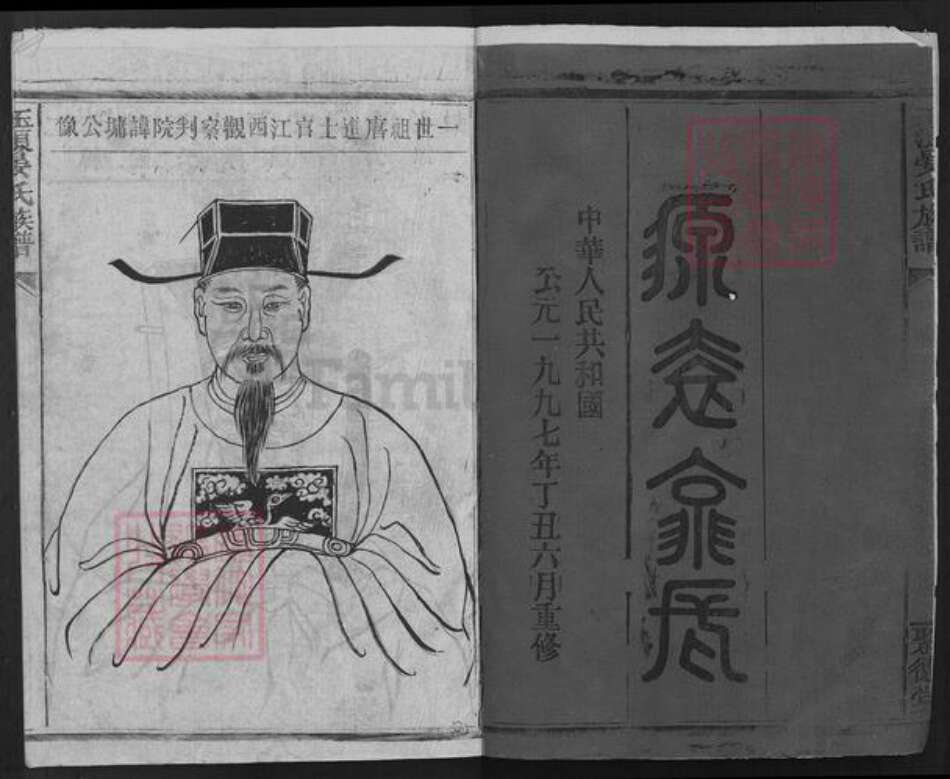 源遠流長
中華人民共和國
公元一九九七年丁丑六月重修
晏氏族譜
一世祖唐進士官江西觀察判院諱墉公像
晏氏族譜